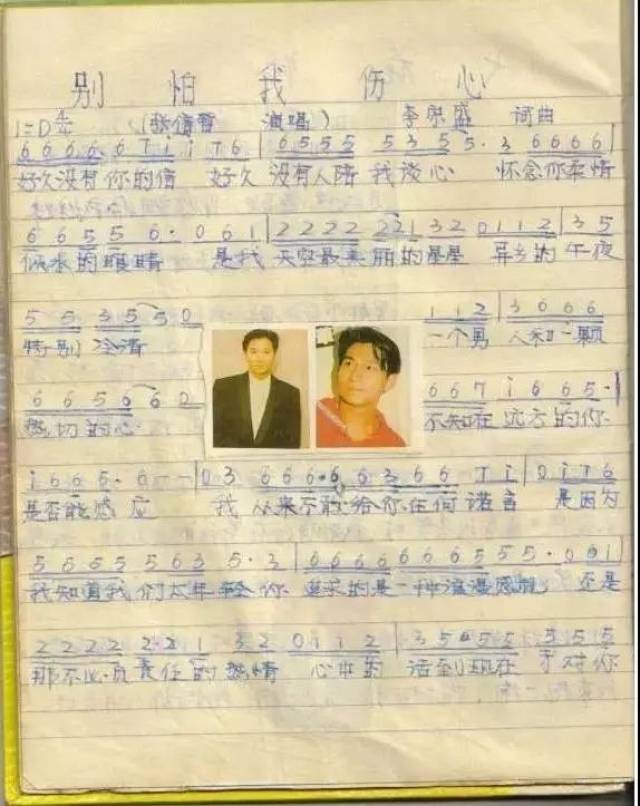 别怕我伤心
1=D 4/4 (张信哲 演唱) 李宗盛 词曲
6 6 6 6 6 7 i i 7 6 | 6 5 5 5 5 3 5 5 · 3 6 6 6 6 |
好久没有你的信 好久没有人陪我谈心 怀念你柔情
6 6 5 5 6 · 0 6 1 | 2 2 2 2 2 2 1 3 2 0 1 1 2 | 3 5
似水的眼睛 是我天空最美丽的星星 异乡的午夜
5 5 3 5 5 0 1 1 2 | 3 6 6 6
特别冷清 一个男人和一颗
6 6 5 6 6 0 6 6 7 i 6 6 5 · |
热切的心 不知在远方的你
i 6 6 5 · 6 - - | 0 3 6 6 6 · 6 6 3 6 6 7 i | 0 i 7 6
是否能感应 我从来不敢给你任何诺言 是因为
5 6 6 5 5 5 6 3 5 · 3 | 6 6 6 6 6 6 6 5 5 5 · 0 6 1
我知道我们太年轻 你追求的是一种浪漫感觉 还是
2 2 2 2 2 2 1 3 2 0 1 1 2 | 3 5 5 5 5 5 5
那不必负责任的热情 心中的话到现在才对你